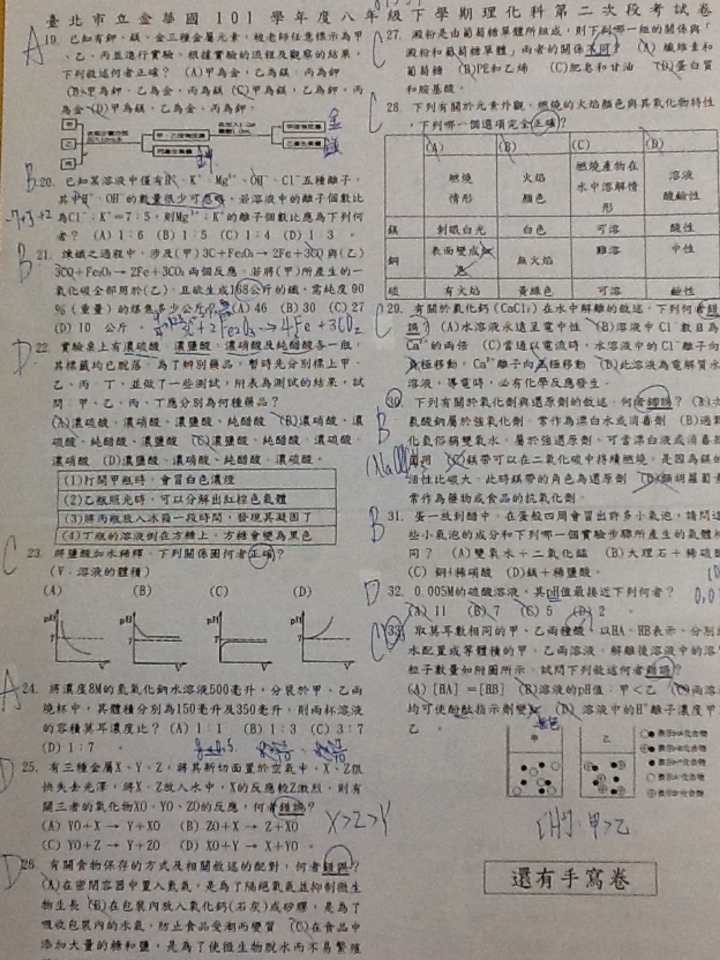 臺北市立金華國 101 學年度八年級下學期理化科第二次段考試卷
A
19. 已知有鉀、鎂、金三種金屬元素，被老師任意標示為甲
、乙、丙並進行實驗，根據實驗的流程及觀察的結果，
下列敘述何者正確？ (A)甲為金，乙為鎂，丙為鉀
(B)甲為鉀，乙為金，丙為鎂 (C)甲為鎂，乙為鉀，丙
為金 (D)甲為鎂，乙為金，丙為鉀。
甲
乙
丙
金
鎂
B
20. 已知某溶液中僅有H⁺、K⁺、Mg²⁺、OH⁻、Cl⁻五種離子，
其中H⁺、OH⁻的數量很少可忽略。若溶液中的離子個數比
為Cl⁻：K⁺＝7：5，則Mg²⁺：K⁺的離子個數比應為下列何
者？ (A) 1：6 (B) 1：5 (C) 1：4 (D) 1：3 。
B
21. 煉鐵之過程中，涉及(甲)3C＋Fe₂O₃→ 2Fe＋3CO與(乙)
3CO＋Fe₂O₃→ 2Fe＋3CO₂兩個反應。若將(甲)所產生的一
氧化碳全部用於(乙)，且欲生成168公斤的鐵，需純度 90
%（重量）的煤焦多少公斤？ (A) 46 (B) 30 (C) 27
(D) 10 公斤 。
3C+2Fe₂O₃→4Fe+3CO₂
D
22. 實驗桌上有濃硫酸、濃鹽酸、濃硝酸及純醋酸各一瓶，
其標籤均已脫落。為了辨別藥品，暫時先分別標上甲、
乙、丙、丁，並做了一些測試，附表為測試的結果，試
問：甲、乙、丙、丁應分別為何種藥品？
(A)濃硫酸、濃硝酸、濃鹽酸、純醋酸 (B)濃硝酸、濃
硫酸、純醋酸、濃鹽酸 (C)濃鹽酸、純醋酸、濃硫酸、
濃硝酸 (D)濃鹽酸、濃硝酸、純醋酸、濃硫酸。
(1)打開甲瓶時，會冒白色濃煙
(2)乙瓶照光時，可以分解出紅棕色氣體
(3)將丙瓶放入冰箱一段時間，發現其凝固了
(4)丁瓶的溶液倒在方糖上，方糖會變為黑色
C
23. 將鹽酸加水稀釋，下列關係圖何者正確？
(V：溶液的體積)
(A) (B) (C) (D)
pH pH pH pH
7 7 7 7
V V V V
A
24. 將濃度8M的氫氧化鈉水溶液500毫升，分裝於甲、乙兩
燒杯中，其體積分別為150毫升及350毫升，則兩杯溶液
的容積莫耳濃度比？ (A) 1：1 (B) 1：3 (C) 3：7
(D) 1：7 。
D
25. 有三種金屬X、Y、Z，將其新切面置於空氣中，X、Z很
快失去光澤，將X、Z放入水中，X的反應較Z激烈，則有
關三者的氧化物XO、YO、ZO的反應，何者錯誤？
(A) YO＋X → Y＋XO (B) ZO＋X → Z＋XO
(C) YO＋Z → Y＋ZO (D) XO＋Y → X＋YO 。
X>Z>Y
D
26. 有關食物保存的方式及相關敘述的配對，何者錯誤？
(A)在密閉容器中置入氮氣，是為了隔絕氧氣並抑制微生
物生長 (B)在包裝內放入氧化鈣(石灰)或矽膠，是為了
吸收包裝內的水氣，防止食品受潮而變質 (C)在食品中
添加大量的糖和鹽，是為了使微生物脫水而不易繁殖
C
27. 澱粉是由葡萄糖單體所組成，則下列哪一組的關係與「
澱粉和葡萄糖單體」兩者的關係不同？ (A) 纖維素和
葡萄糖 (B)PE和乙烯 (C)肥皂和甘油 (D)蛋白質
和胺基酸。
C
28. 下列有關於元素外觀、燃燒的火焰顏色與其氧化物特性
，下列哪一個選項完全正確？
(A) (B) (C) (D)
燃燒情形 火焰顏色 燃燒產物在水中溶解情形 溶液酸鹼性
鎂 刺眼白光 白色 可溶 酸性
銅 表面變成 無火焰 難溶 中性
硫 有火焰 黃綠色 可溶 鹼性
C
29. 有關於氯化鈣 (CaCl₂) 在水中解離的敘述，下列何者錯
誤？ (A)水溶液永遠呈電中性 (B)溶液中 Cl⁻數目為
Ca²⁺的兩倍 (C)當通以電流時，水溶液中的 Cl⁻離子向
極移動，Ca²⁺離子向極移動 (D)此溶液為電解質水
溶液，導電時，必有化學反應發生。
B
30. 下列有關於氧化劑與還原劑的敘述，何者錯誤？ (A)次
氯酸鈉屬於強氧化劑，常作為漂白水或消毒劑 (B)過氧
化氫俗稱雙氧水，屬於強還原劑，可當漂白液或消毒
(C)鎂帶可以在二氧化碳中持續燃燒，是因為鎂的
活性比碳大，此時鎂帶的角色為還原劑 (D)類胡蘿蔔素
常作為藥物或食品的抗氧化劑。
B
31. 蛋一放到醋中，在蛋殼四周會冒出許多小氣泡，請問這
些小氣泡的成分和下列哪一個實驗步驟所產生的氣體相
同？ (A) 雙氧水＋二氧化錳 (B)大理石＋稀硫酸
(C) 銅+稀硝酸 (D)鎂＋稀鹽酸。
D
32. 0.005M的硫酸溶液，其pH值最接近下列何者？
(A) 11 (B) 7 (C) 5 (D) 2 。
C
33. 取莫耳數相同的甲、乙兩種酸，以HA、HB表示，分別加
水配置成等體積的甲、乙兩溶液，解離後溶液中的溶質
粒子數量如附圖所示。試問下列敘述何者錯誤？
(A) [HA]＝[HB] (B)溶液的pH值：甲＜乙 (C)兩溶
均可使酚酞指示劑變 (D) 溶液中的H⁺離子濃度甲
乙 。
無色
甲 乙
[H⁺]：甲>乙
還有手寫卷